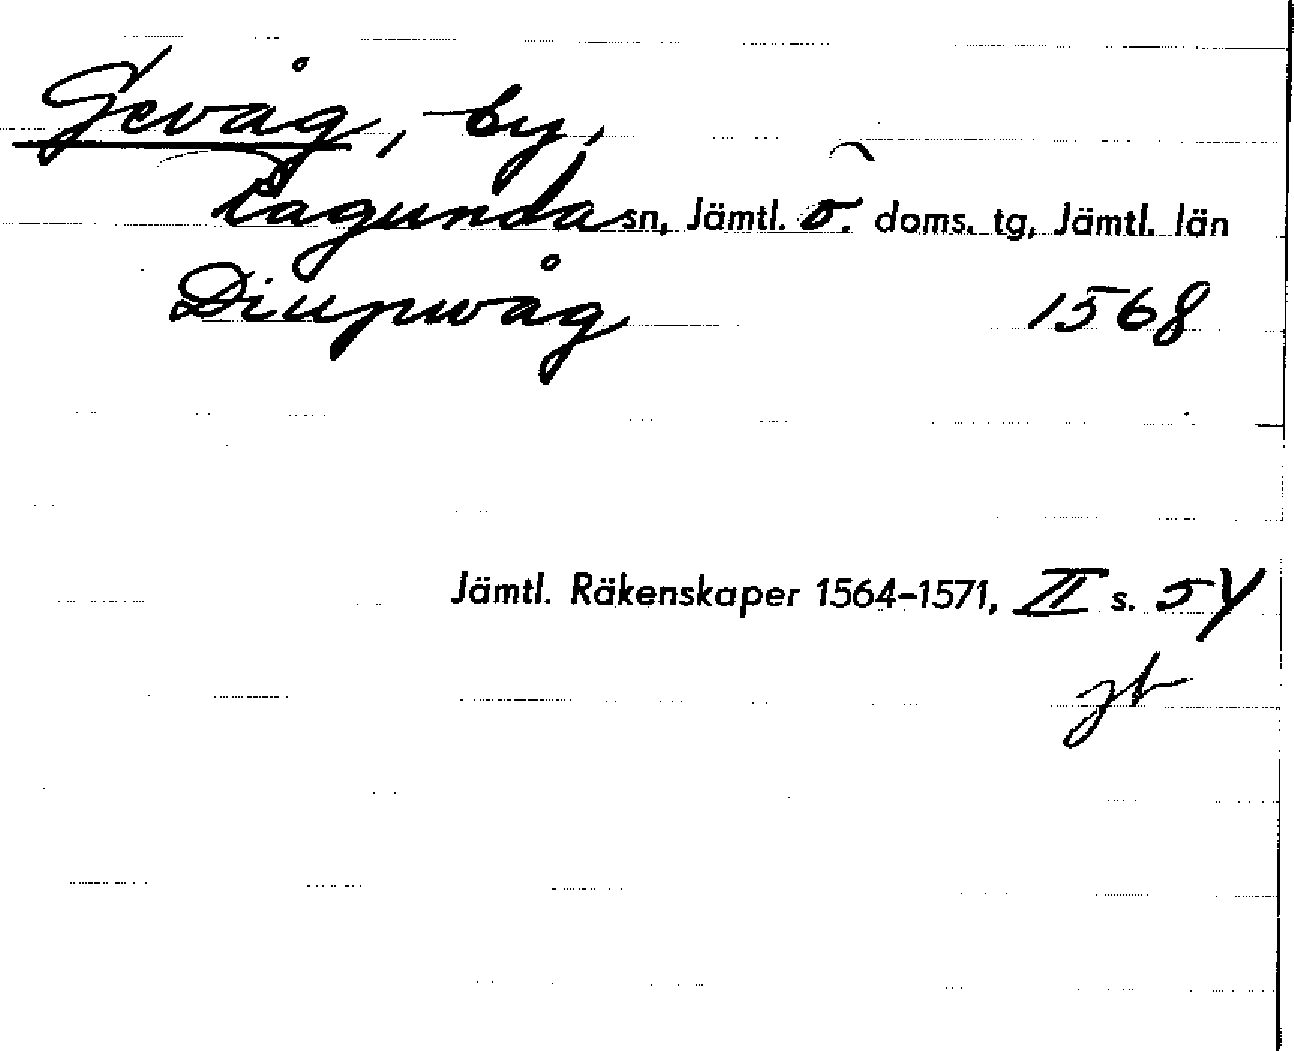 Gevåg, by,
Ragunda sn, Jämtl. ö. doms. tg, Jämtl. län
Diupwåg 1568
Jämtl. Räkenskaper 1564-1571, II s. 54